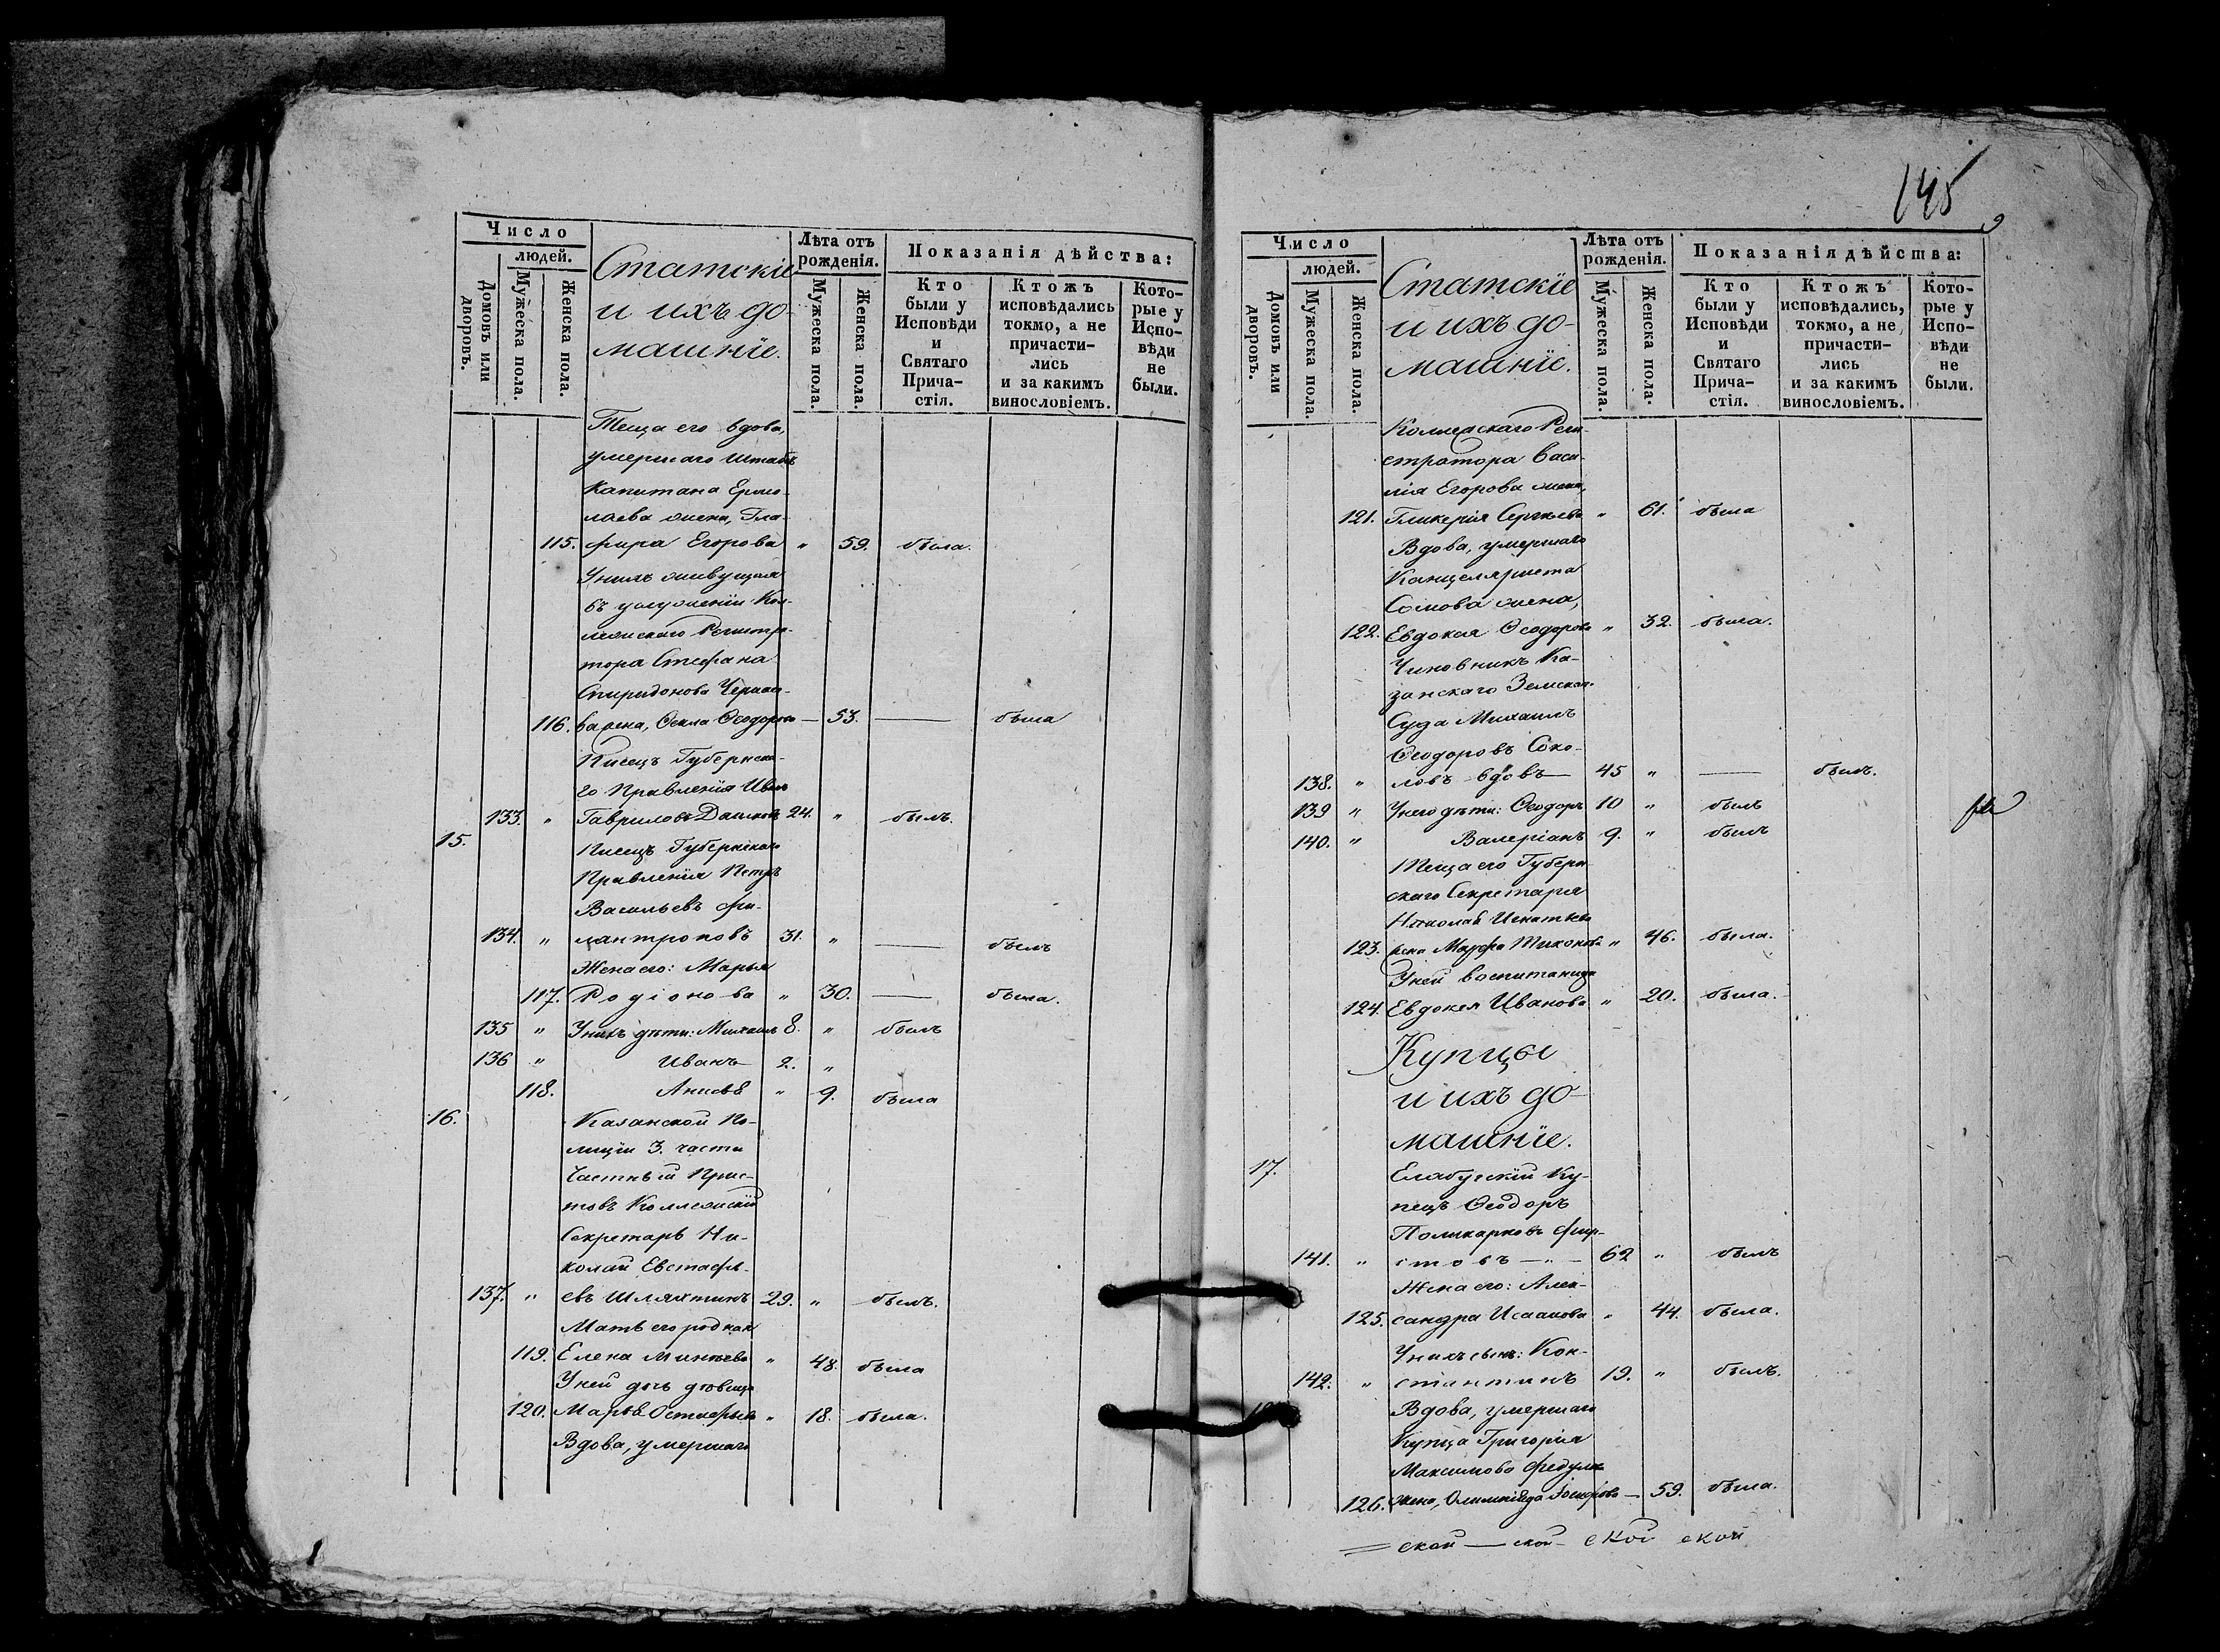 Число
людей.
Домовъ или дворовъ.
Мужеска пола.
Женска пола.
Статскіе
и ихъ до-
машніе.
Лѣта отъ рожденія.
Мужеска пола.
Женска пола.
Показанія дѣйства:
Кто были у Исповѣди и Святаго Прича-стія.
Ктожъ исповѣдались токмо, а не причасти-лись и за какимъ винословіемъ.
Кото-рые у Испо-вѣди не были.
Теща его вдова,
умершаго Штабсъ
Капитана Ермо-
лаева жена, Гла-
115. фира Егорова " 59. была.
У нихъ живущая
въ услуженіи Кол-
лежскаго Регистра-
тора Стефана
Спиридонова
116. Ѳекла Ѳеодорова — 53. — была
Писецъ Губернска-
го Правленія Иванъ
133. " Гавриловъ 24. " былъ.
15. Писецъ Губернскаго
Правленія Петръ
Васильевъ Фи-
134. " лантроповъ 31. " — былъ
Жена его: Марья
117. Родіонова " 30. — была.
135 " У нихъ дѣти: Михаилъ 8. " былъ
136 " Иванъ 2. "
118. " 9. была
16. Казанской По-
лиціи 3. части
Частный Прис-
товъ Коллежскій
Секретарь Ни-
колай Евстафь-
137. " евъ Шляхтинъ 29. " былъ.
Мать его родная
119. Елена Минѣева " 48. была
У ней дочь дѣвица
120. Марья " 18. была.
Вдова, умершаго
145
9
Число
людей.
Домовъ или дворовъ.
Мужеска пола.
Женска пола.
Статскіе
и ихъ до-
машніе.
Лѣта отъ рожденія.
Мужеска пола.
Женска пола.
Показанія дѣйства:
Кто были у Исповѣди и Святаго Прича-стія.
Ктожъ исповѣдались, токмо, а не причасти-лись и за какимъ винословіемъ.
Кото-рые у Испо-вѣди не были.
Коллежскаго Реги-
стратора Васи-
лія Егорова жена,
121. Гликерія Сергѣева " 61. была
Вдова, умершаго
Канцеляриста
Сомова жена,
122. Евдокея Ѳеодорова " 32. была.
Чиновникъ Ка-
занскаго Земскаго
Суда Михаилъ
Ѳеодоровъ Соко-
138. " ловъ вдовъ — 45 " — былъ.
139 " У него дѣти: Ѳеодоръ 10 " былъ
140. " Валеріанъ 9. " былъ
Теща его Губерн
скаго Секретаря
Николая Игнатьева
123. жена Марфа Тихонова " 46. была.
У ней воспитаница
124. Евдокея Иванова " 20. была.
Купцы
и ихъ до-
машніе.
17. Елабугскій Ку-
пецъ Ѳеодоръ
Поликарповъ Фир-
141. " стовъ — " — 62 " былъ
Жена его: Алек-
125. сандра Исаакова " 44. была.
У нихъ сынъ: Кон-
142. " стантинъ 19. " былъ.
Вдова, умершаго
Купца Григорія
Максимова
126. жена, Олимпіяда Іосифова — 59. была.
ской — ской — ской ской